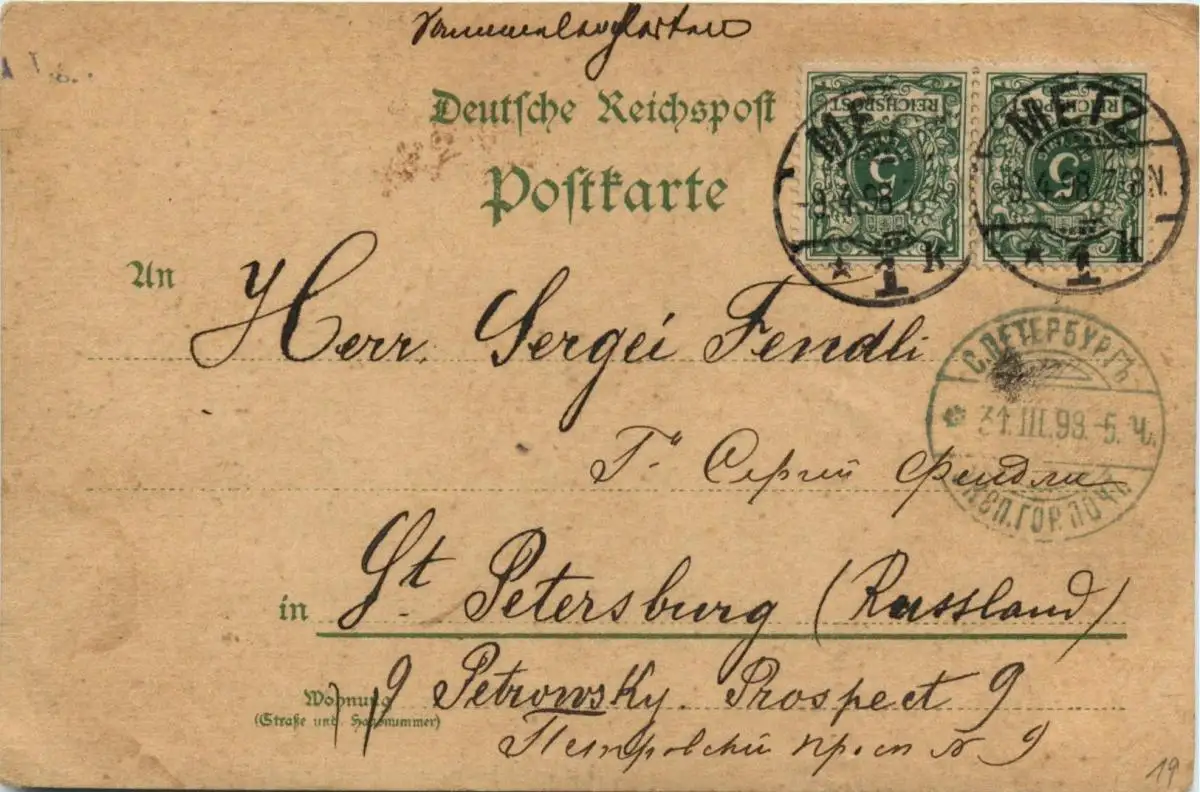 Deutsche Reichspost
Postkarte
REICHSPOST
5
PFENNIG
REICHSPOST
5
PFENNIG
METZ
9.4.98.7-8N.
* 1 K
An
Herr. Sergei Fendli
С.ПЕТЕРБУРГЪ
31.III.98.-5.Ч.
Гъ Сергий Фендли
in St. Petersburg (Russland)
Wohnung
(Straße und Hausnummer)
9 Petrowsky. Prospect 9
Петровский просп № 9
19